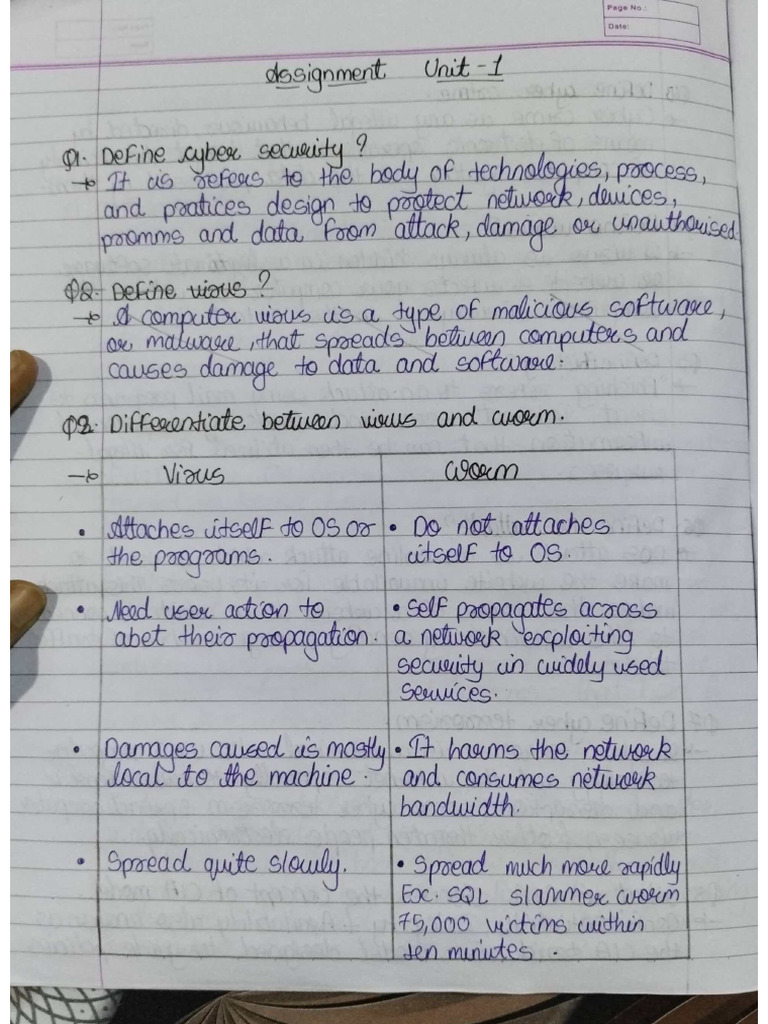 Page No.:
Date:
Assignment Unit-1
Q1. Define cyber security?
→ It is refers to the body of technologies, process,
and pratices design to protect network, devices,
promms and data from attack, damage or unauthorised.
Q2. Define virus?
→ A computer virus is a type of malicious software,
or malware, that spreads between computers and
causes damage to data and software.
Q2. Differentiate between virus and worm.
→ Virus
Worm
• Attaches itself to OS or
the programs.
• Do not attaches
itself to OS.
• Need user action to
abet their propagation.
• Self propagates across
a network exploiting
security in widely used
services.
• Damages caused is mostly
local to the machine.
• It harms the network
and consumes network
bandwidth.
• Spread quite slowly.
• Spread much more rapidly
Ex. SQL slammer worm
75,000 victims within
ten minutes.